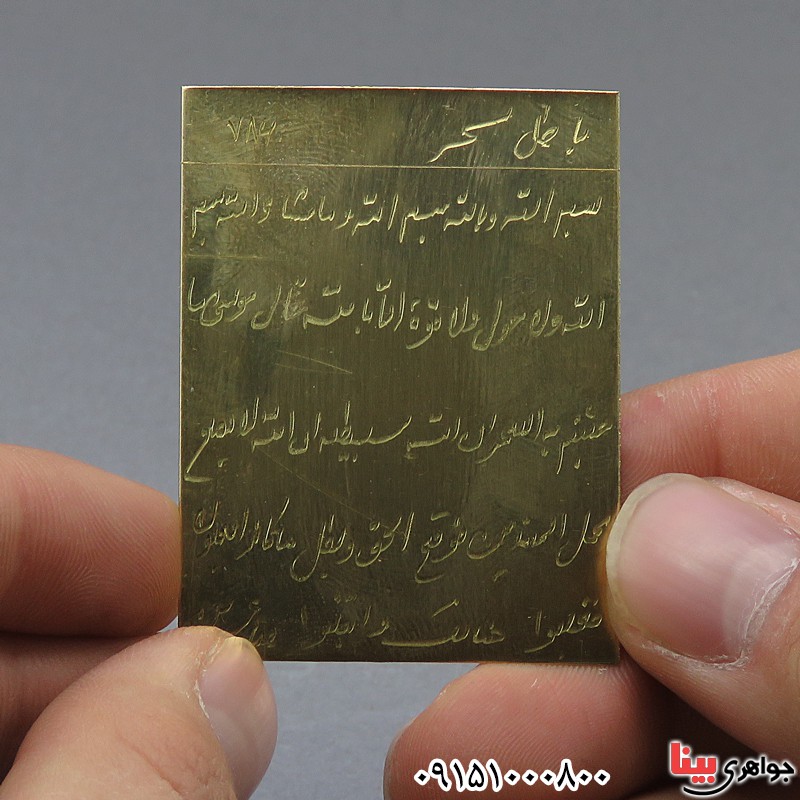 باطل سحر ۷۸۶
بسم الله وبالله بسم الله وماشا والله بسم
الله ولا حول ولا قوة الا بالله قال موسی ما
جئتم به السحر ان الله سیبطله ان الله لا یصلح
عمل المفسدین فوقع الحق وبطل ماکانوا یعملون
فغلبوا هنالک وانقلبوا صاغرین
۰۹۱۵۱۰۰۰۸۰۰
جواهری بینا